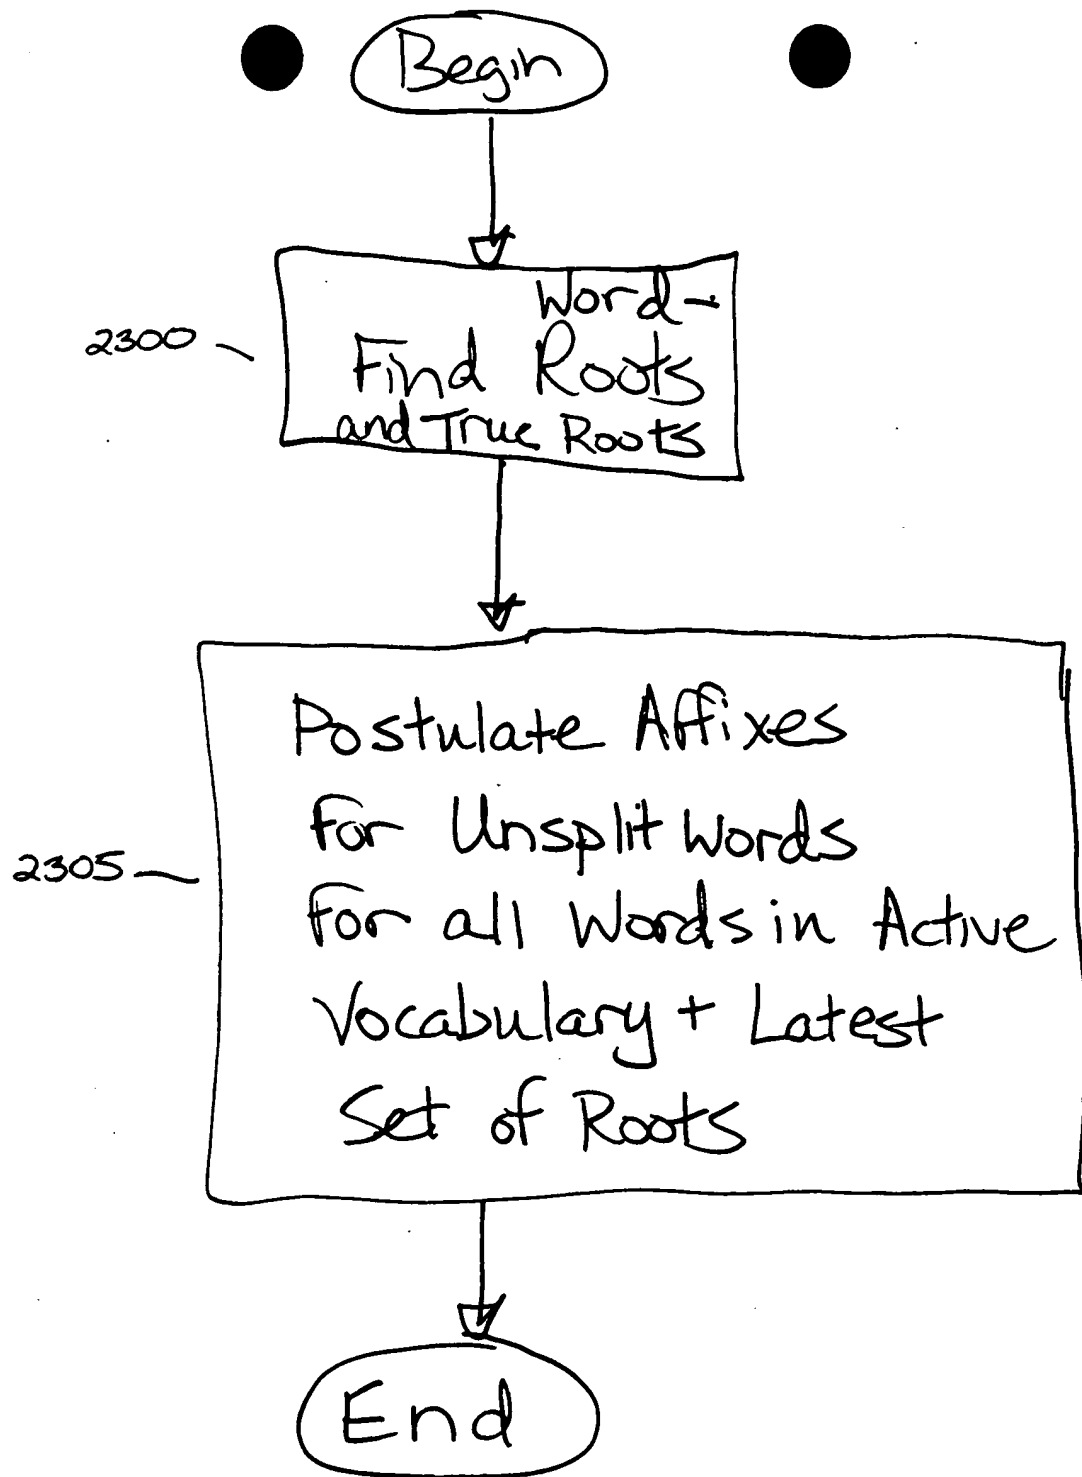 Begin
Word-
2300
Find Roots
and True Roots
Postulate Affixes
for Unsplit Words
2305
for all Words in Active
Vocabulary + Latest
Set of Roots
End